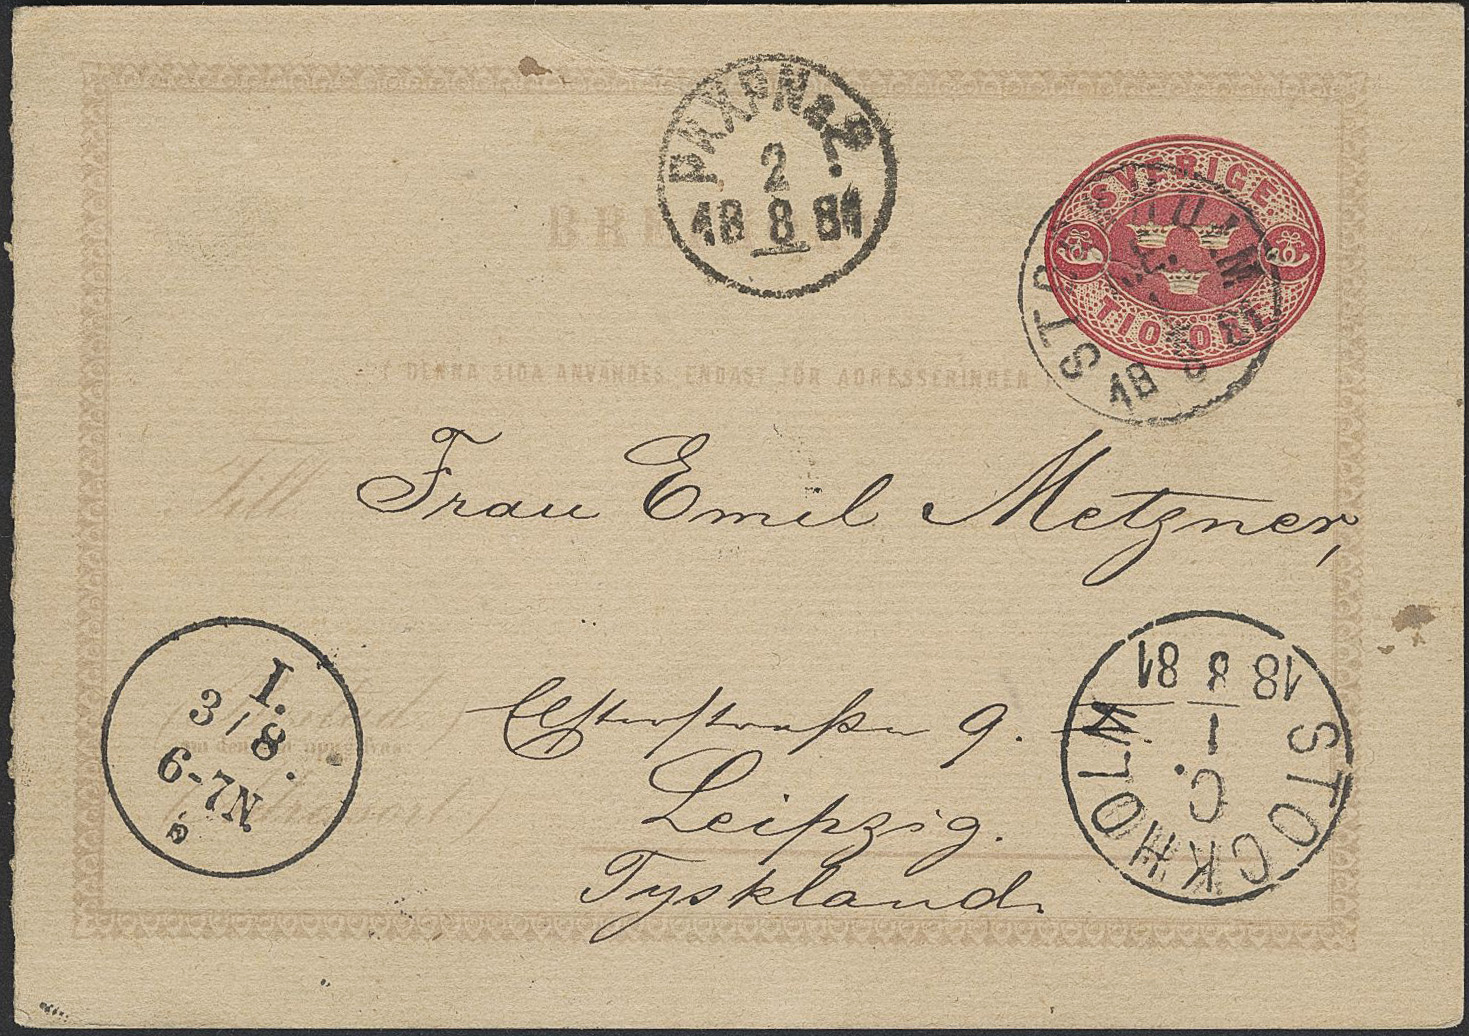 PKXP Nº 2.
2
18 8 81
SVERIGE
TIO ÖRE
STOCKHOLM
18 81
BRE
DENNA SIDA ANVÄNDES ENDAST FÖR ADRESSERINGEN
Till Frau Emil Metzner,
Elsterstraße 9.
Leipzig.
Tyskland.
I.
3/8.
6-7N.
STOCKHOLM
18 8 81
1
C.